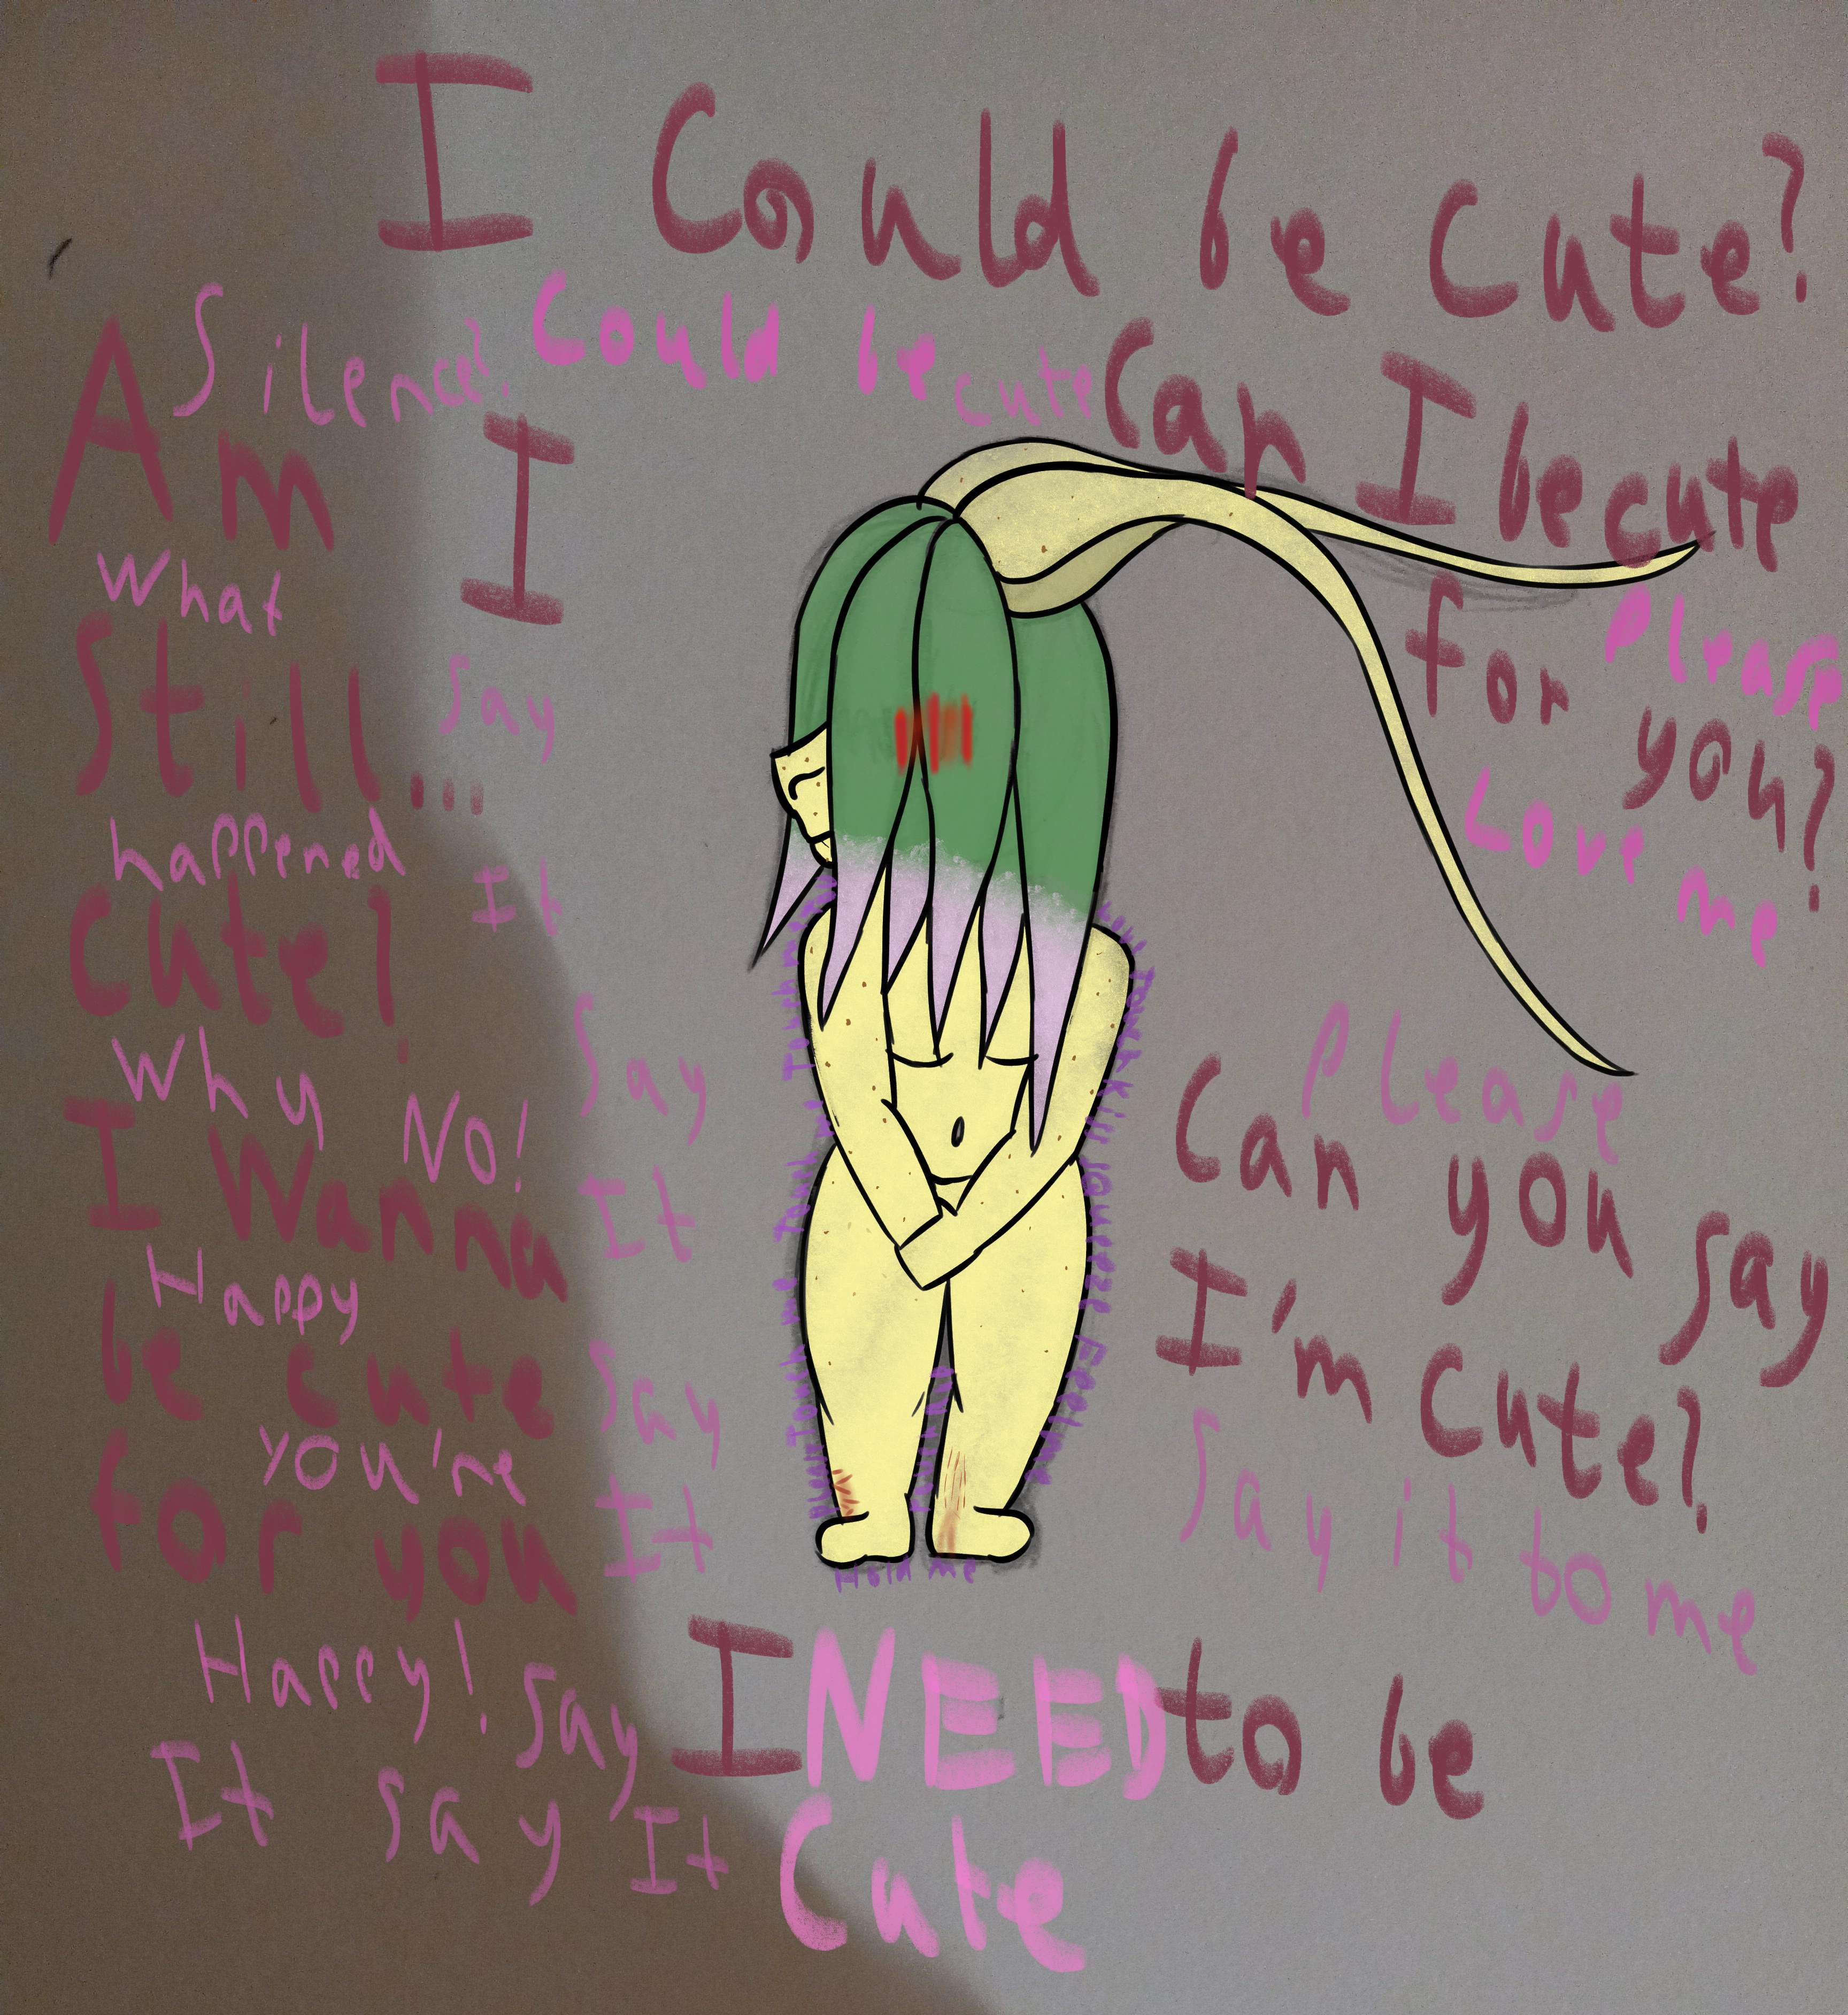 I Could be Cute?
Silence?
Could be cute
Can I be cute
for you?
Please
Love me
Am I
Still...
Cute?
What
happened
Why
No!
Say
It
Say
It
Say
It
I Wanna
be cute
for you
Happy
you're
Happy!
Say
It say It
Please
Can you say
I'm Cute?
Say it to me
Touch me
Hold me
I NEED to be
Cute